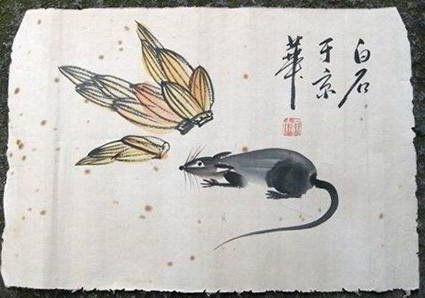 白石
于京
華